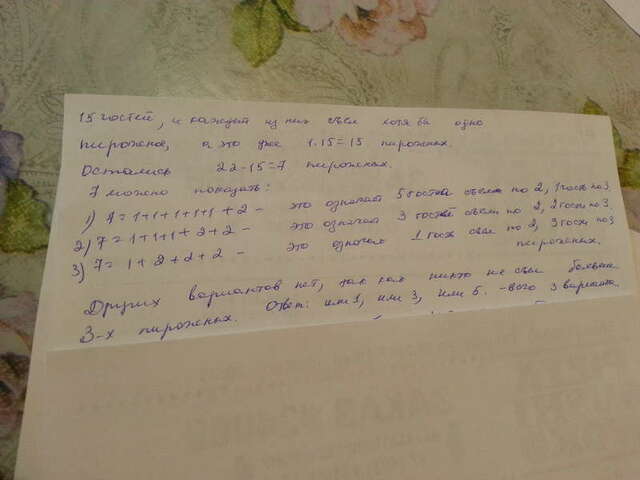 15 гостей, и каждый из них съел хотя бы одно
пирожное, а это уже 1·15=15 пирожных.
Остались 22-15=7 пирожных.
7 можно показать:
1) 7=1+1+1+1+1+2 - это означает 5 гостей съели по 2, 1 гость по 3.
2) 7=1+1+1+2+2 - это означает 3 гостей съели по 2, 2 гостя по 3.
3) 7=1+2+2+2 - это означает 1 гость съел по 2, 3 гостя по 3
пирожных.
Других вариантов нет, так как никто не съел больше
3-х пирожных. Ответ: или 1, или 3, или 5. - всего 3 варианта.